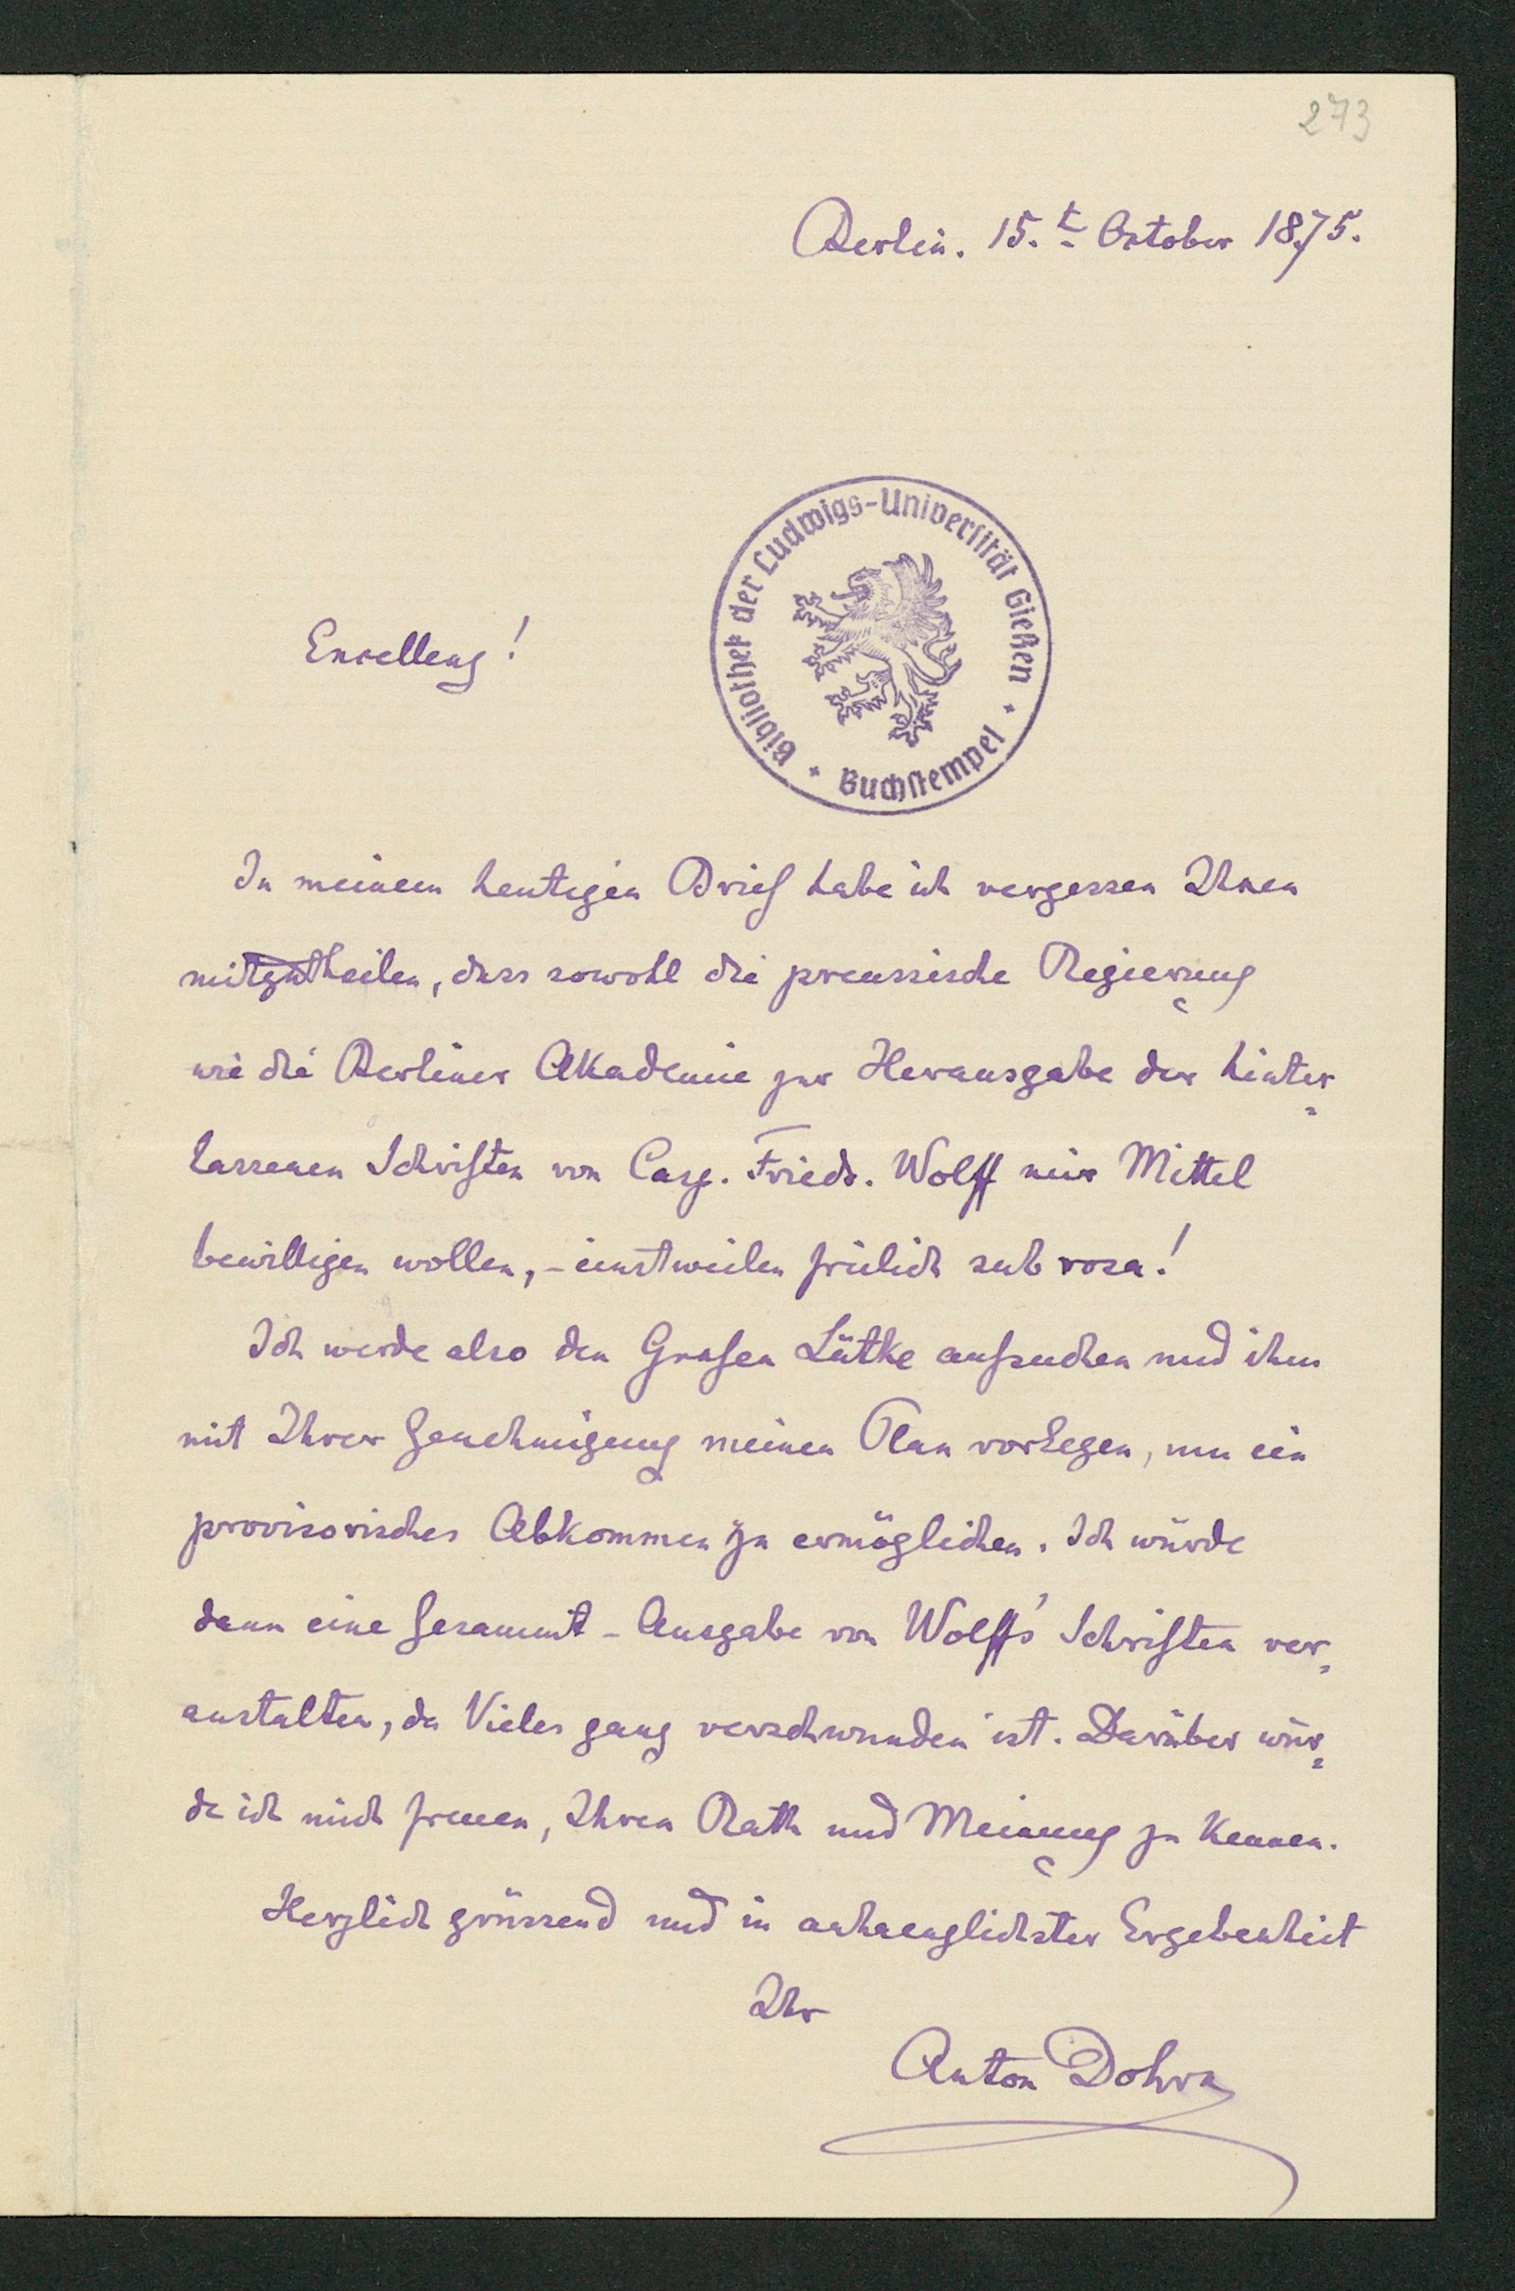 273
Berlin. 15.t October 1875.
Bibliothek der Ludwigs-Universität Gießen
Buchstempel
Excellenz!
In meinem heutigen Brief habe ich vergessen Ihnen
mitzutheilen, dass sowohl die preussische Regierung
wie die Berliner Akademie zur Herausgabe der hinter-
lassenen Schriften von Casp. Friedr. Wolff mir Mittel
bewilligen wollen, - einstweilen freilich sub rosa!
Ich werde also den Grafen Lütke aufsuchen und ihm
mit Ihrer Genehmigung meinen Plan vorlegen, um ein
provisorisches Abkommen zu ermöglichen. Ich würde
dann eine Gesammt-Ausgabe von Wolff's Schriften ver-
anstalten, da Vieles ganz verschwunden ist. Darüber wür-
de ich mich freuen, Ihren Rath und Meinung zu kennen.
Herzlich grüssend und in anhaenglichster Ergebenheit
Ihr
Anton Dohrn